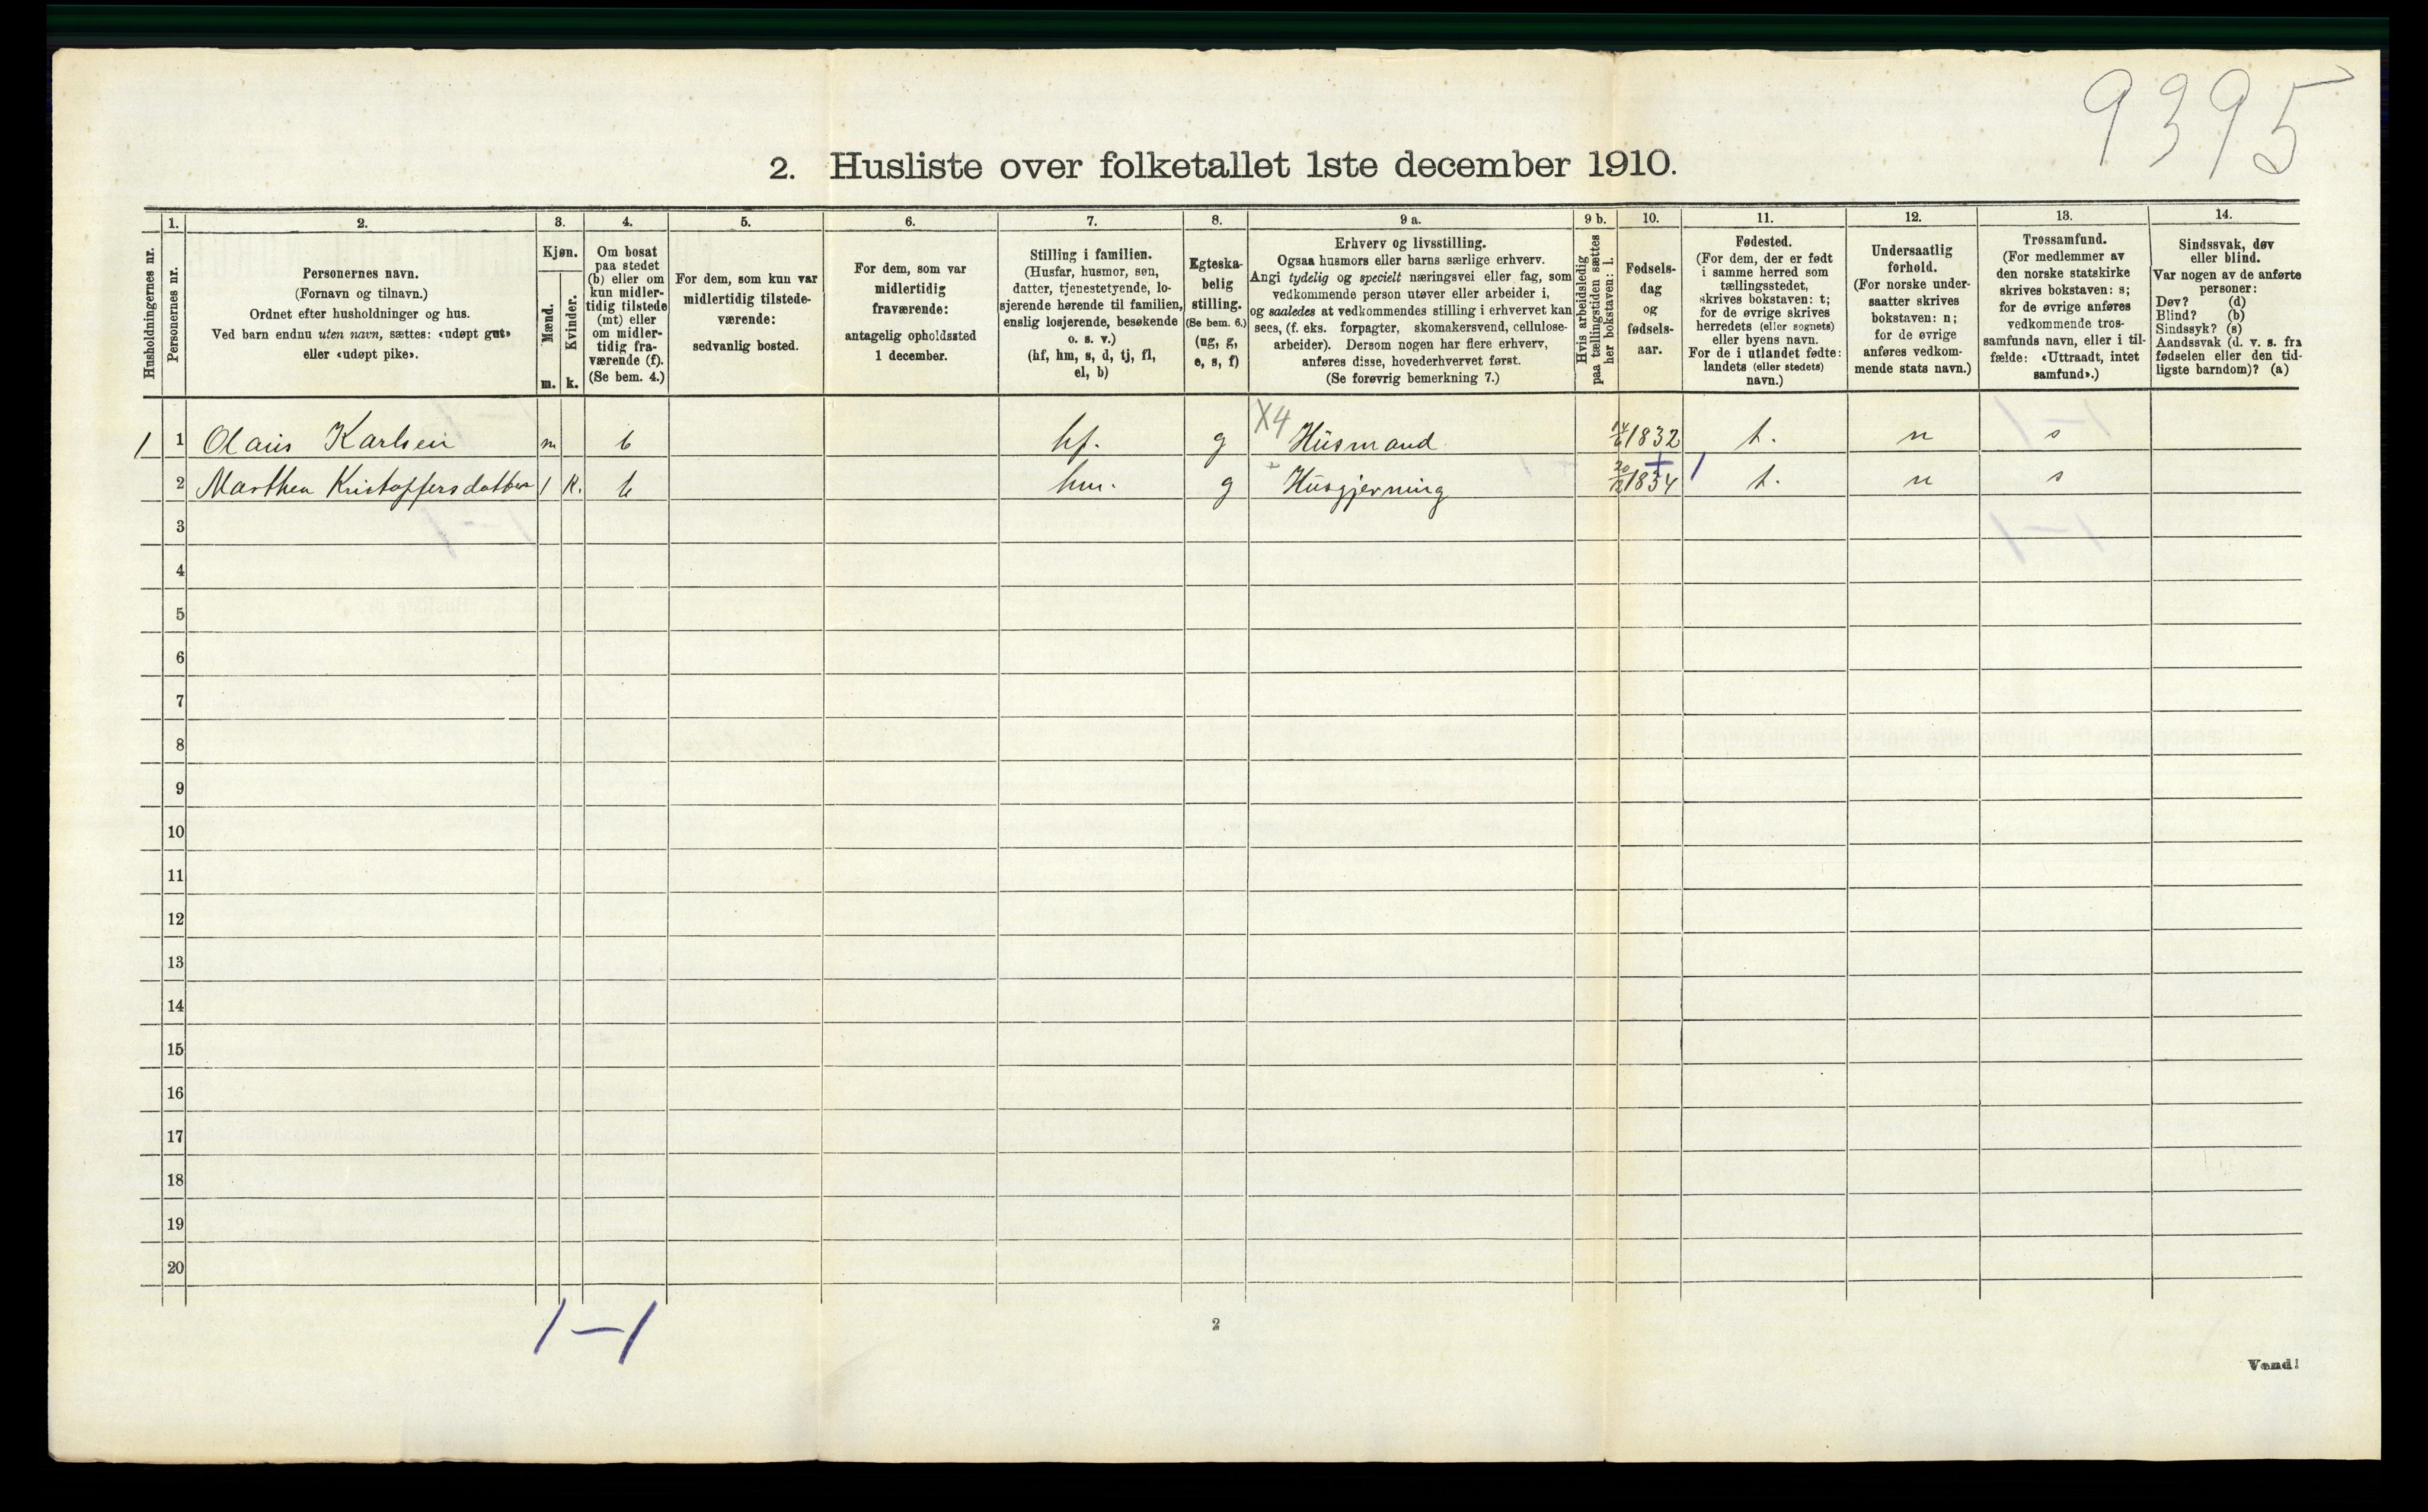 9395
2. Husliste over folketallet 1ste december 1910.
Husholdningernes nr.
1.
Personernes nr.
2.
Personernes navn.
(Fornavn og tilnavn.)
Ordnet efter husholdninger og hus.
Ved barn endnu uten navn, sættes: «udøpt gut»
eller «udøpt pike».
3.
Kjøn.
Mænd.
Kvinder.
m. k.
4.
Om bosat
paa stedet
(b) eller om
kun midler-
tidig tilstede
(mt) eller
om midler-
tidig fra-
værende (f).
(Se bem. 4.)
5.
For dem, som kun var
midlertidig tilstede-
værende:
sedvanlig bosted.
6.
For dem, som var
midlertidig
fraværende:
antagelig opholdssted
1 december.
7.
Stilling i familien.
(Husfar, husmor, søn,
datter, tjenestetyende, lo-
sjerende hørende til familien,
enslig losjerende, besøkende
o. s. v.)
(hf, hm, s, d, tj, fl,
el, b)
8.
Egteska-
belig
stilling.
(Se bem. 6.)
(ug, g,
e, s, f)
9 a.
Erhverv og livsstilling.
Ogsaa husmors eller barns særlige erhverv.
Angi tydelig og specielt næringsvei eller fag, som
vedkommende person utøver eller arbeider i,
og saaledes at vedkommendes stilling i erhvervet kan
sees, (f. eks. forpagter, skomakersvend, cellulose-
arbeider). Dersom nogen har flere erhverv,
anføres disse, hovederhvervet først.
(Se forøvrig bemerkning 7.)
9 b.
Hvis arbeidsledig
paa tællingstiden sættes
her bokstaven: l.
10.
Fødsels-
dag
og
fødsels-
aar.
11.
Fødested.
(For dem, der er født
i samme herred som
tællingsstedet,
skrives bokstaven: t;
for de øvrige skrives
herredets (eller sognets)
eller byens navn.
For de i utlandet fødte:
landets (eller stedets)
navn.)
12.
Undersaatlig
forhold.
(For norske under-
saatter skrives
bokstaven: n;
for de øvrige
anføres vedkom-
mende stats navn.)
13.
Trossamfund.
(For medlemmer av
den norske statskirke
skrives bokstaven: s;
for de øvrige anføres
vedkommende tros-
samfunds navn, eller i til-
fælde: «Uttraadt, intet
samfund».)
14.
Sindssvak, døv
eller blind.
Var nogen av de anførte
personer:
Døv? (d)
Blind? (b)
Sindssyk? (s)
Aandssvak (d. v. s. fra
fødselen eller den tid-
ligste barndom)? (a)
1 1 Olaus Karlsen m b hf. g X4 Husmand 14/6 1832 t. n s
2 Marthea Kristoffersdatter 1 k. b hm. g Husgjerning 20/12 1834 1 t. n s
3
4
5
6
7
8
9
10
11
12
13
14
15
16
17
18
19
20
1-1
2
Vend!